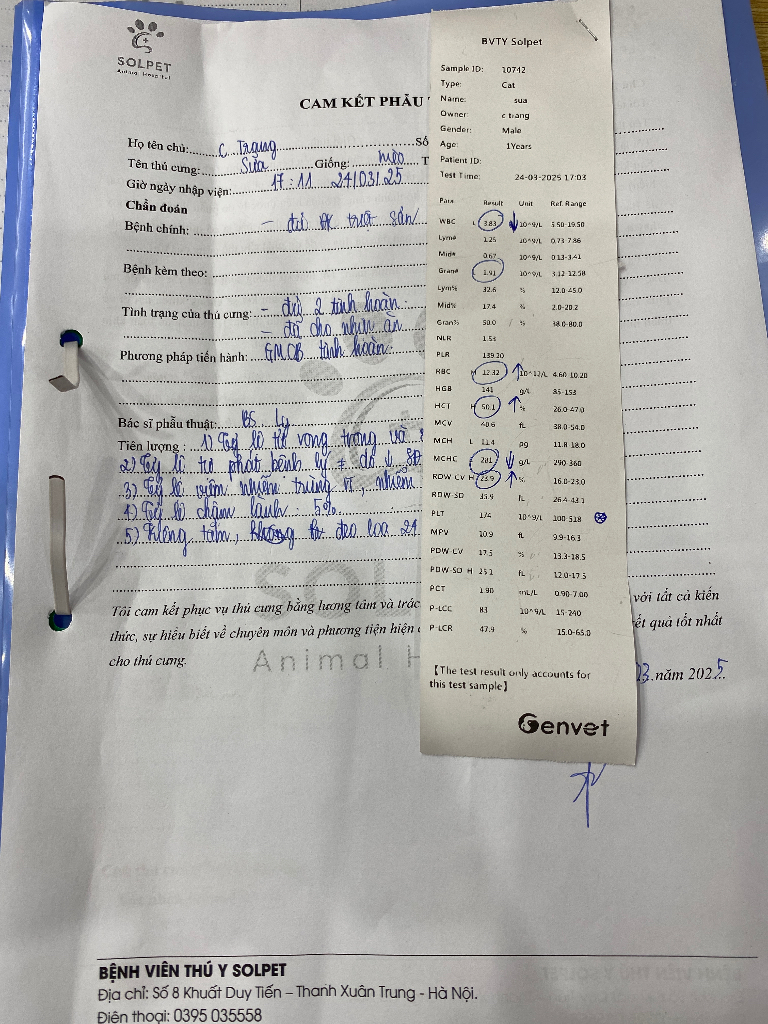 SOLPET
Animal Hospital
CAM KẾT PHẪU
Họ tên chủ: C. Trang Số
Tên thú cưng: Sữa Giống: mèo T
Giờ ngày nhập viện: 17:11 24/03/25
Chẩn đoán
Bệnh chính: - đực triệt sản
Bệnh kèm theo:
Tình trạng của thú cưng: - đủ 2 tinh hoàn
- đã cho nhịn ăn
Phương pháp tiến hành: tinh hoàn
Bác sĩ phẫu thuật: BS Ly
Tiên lượng: 1) Tỷ lệ tử vong trong và
2) Tỷ lệ tự phát bệnh lý
3) Tỷ lệ viêm nhiễm trùng nhiễm
4) Tỷ lệ chậm lành: 5%
5) Kiêng tắm, đeo loa 24
Tôi cam kết phục vụ thú cưng bằng lương tâm và trác với tất cả kiến
thức, sự hiểu biết về chuyên môn và phương tiện hiện ết quả tốt nhất
cho thú cưng.
SOL
Animal H
03 năm 2025.
BVTY Solpet
Sample ID: 10742
Type: Cat
Name: sua
Owner: c trang
Gender: Male
Age: 1Years
Patient ID:
Test Time: 24-03-2025 17:03
Para Result Unit Ref. Range
WBC L 3.83 ↓ 10^9/L 5.50-19.50
Lym# 1.25 10^9/L 0.73-7.86
Mid# 0.67 10^9/L 0.13-3.41
Gran# L 1.91 10^9/L 3.12-12.58
Lym% 32.6 % 12.0-45.0
Mid% 17.4 % 2.0-20.2
Gran% 50.0 % 38.0-80.0
NLR 1.53
PLR 139.20
RBC H 12.32 ↑ 10^12/L 4.60-10.20
HGB 141 g/L 85-153
HCT H 50.1 ↑ % 26.0-47.0
MCV 40.6 fL 38.0-54.0
MCH L 11.4 pg 11.8-18.0
MCHC L 281 ↓ g/L 290-360
RDW-CV H 23.9 ↑ % 16.0-23.0
RDW-SD 35.9 fL 26.4-43.1
PLT 174 10^9/L 100-518
MPV 10.9 fL 9.9-16.3
PDW-CV 17.5 % 13.3-18.5
PDW-SD H 25.1 fL 12.0-17.5
PCT 1.90 mL/L 0.90-7.00
P-LCC 83 10^9/L 15-240
P-LCR 47.9 % 15.0-65.0
【The test result only accounts for
this test sample】
Genvet
BỆNH VIỆN THÚ Y SOLPET
Địa chỉ: Số 8 Khuất Duy Tiến – Thanh Xuân Trung - Hà Nội.
Điện thoại: 0395 035558